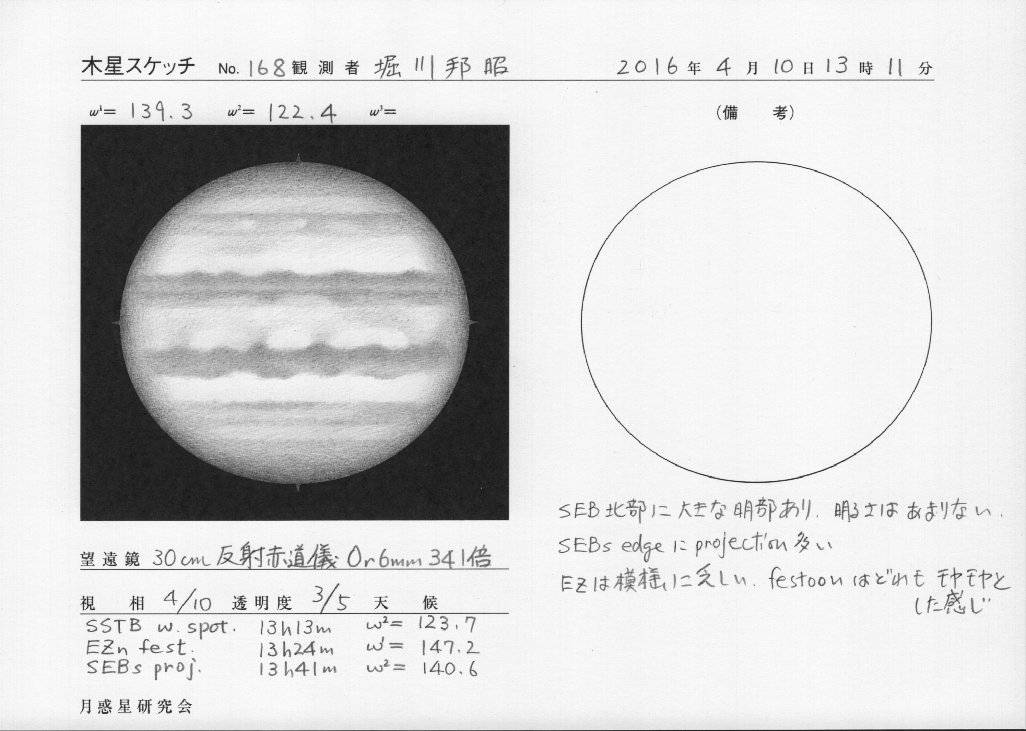 木星スケッチ No. 168 観測者 堀川邦昭 2016年4月10日13時11分
ω¹= 139.3 ω²= 122.4 ω³=
(備 考)
SEB北部に大きな明部あり. 明るさはあまりない.
SEBs edgeにprojection多い
EZは模様に乏しい. festoonはどれもモヤモヤと
した感じ
望遠鏡 30cm反射赤道儀 Or6mm 341倍
視 相 4/10 透明度 3/5 天 候
SSTB w. spot. 13h13m ω²= 123.7
EZn fest. 13h24m ω¹= 147.2
SEBs proj. 13h41m ω²= 140.6
月惑星研究会